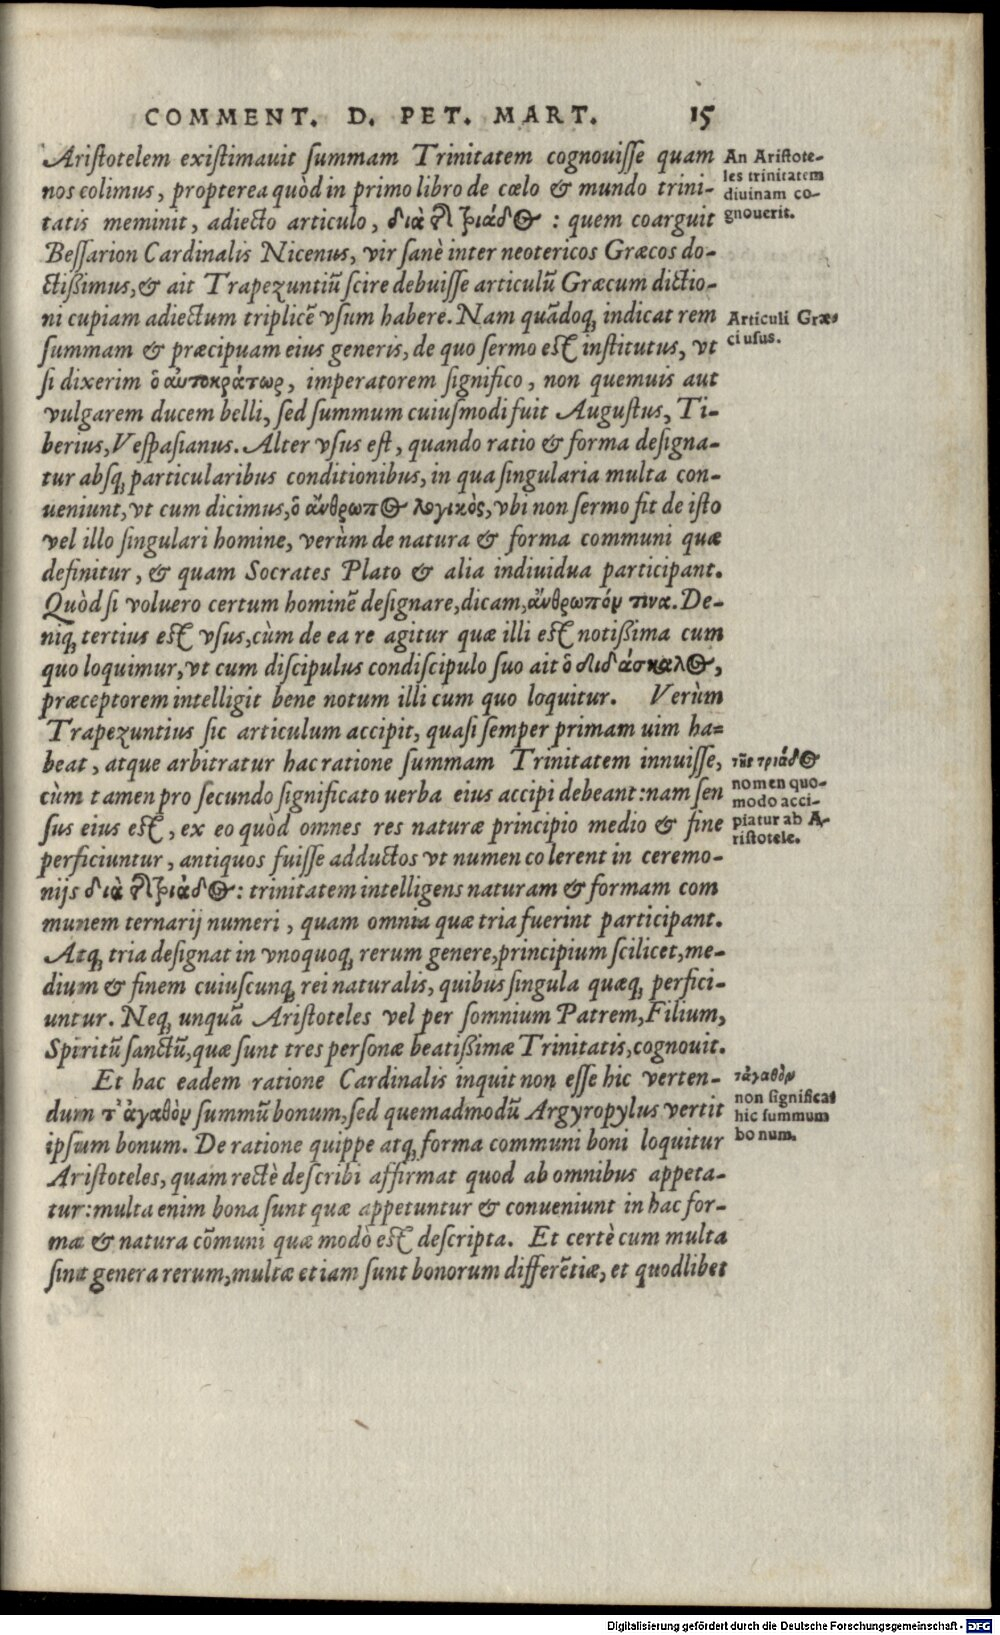 COMMENT. D. PET. MART. 15
Aristotelem existimauit summam Trinitatem cognouisse quam
nos colimus, propterea quòd in primo libro de cœlo & mundo trini-
tatis meminit, adiecto articulo, διὰ τ῀ τριάδ⊙ : quem coarguit
Bessarion Cardinalis Nicenus, vir sanè inter neotericos Græcos do-
ctißimus, & ait Trapezuntiũ scire debuisse articulũ Græcum dictio-
ni cupiam adiectum triplicẽ vsum habere. Nam quãdoq; indicat rem
summam & præcipuam eius generis, de quo sermo est institutus, vt
si dixerim ὁ αὐτοκράτωρ, imperatorem significo, non quemuis aut
vulgarem ducem belli, sed summum cuiusmodi fuit Augustus, Ti-
berius, Vespasianus. Alter vsus est, quando ratio & forma designa-
tur absq; particularibus conditionibus, in qua singularia multa con-
ueniunt, vt cum dicimus, ὁ ἄνθρωπ⊙ λογικὸς, vbi non sermo fit de isto
vel illo singulari homine, verùm de natura & forma communi quæ
definitur, & quam Socrates Plato & alia indiuidua participant.
Quòd si voluero certum hominẽ designare, dicam, ἄνθρωπόν τινα. De-
niq; tertius est vsus, cùm de ea re agitur quæ illi est notißima cum
quo loquimur, vt cum discipulus condiscipulo suo ait ὁ διδάσκαλ⊙,
præceptorem intelligit bene notum illi cum quo loquitur. Verùm
Trapezuntius sic articulum accipit, quasi semper primam uim ha-
beat, atque arbitratur hac ratione summam Trinitatem innuisse,
cùm tamen pro secundo significato uerba eius accipi debeant: nam sen
sus eius est, ex eo quòd omnes res naturæ principio medio & fine
perficiuntur, antiquos fuisse adductos vt numen colerent in ceremo-
nijs διὰ τ῀ τριάδ⊙: trinitatem intelligens naturam & formam com
munem ternarij numeri, quam omnia quæ tria fuerint participant.
Atq; tria designat in vnoquoq; rerum genere, principium scilicet, me-
dium & finem cuiuscunq; rei naturalis, quibus singula quæq; perfici-
untur. Neq; unquã Aristoteles vel per somnium Patrem, Filium,
Spiritũ sanctũ, quæ sunt tres personæ beatißimæ Trinitatis, cognouit.
Et hac eadem ratione Cardinalis inquit non esse hic verten-
dum τ' ἀγαθὸν summũ bonum, sed quemadmodũ Argyropylus vertit
ipsum bonum. De ratione quippe atq; forma communi boni loquitur
Aristoteles, quam rectè describi affirmat quod ab omnibus appeta-
tur: multa enim bona sunt quæ appetuntur & conueniunt in hac for-
ma & natura cõmuni quæ modò est descripta. Et certè cum multa
sint genera rerum, multæ etiam sunt bonorum differẽtiæ, et quodlibet
An Aristote-
les trinitatem
diuinam co-
gnouerit.
Articuli Græ-
ci usus.
τῆς τριάδ⊙
nomen quo-
modo acci-
piatur ab A-
ristotele.
τἀγαθὸν
non significat
hic summum
bonum.
Digitalisierung gefördert durch die Deutsche Forschungsgemeinschaft - DFG